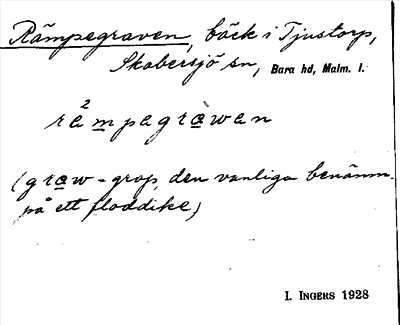 Rämpegraven, bäck i Tjustorp,
Skabersjö sn, Bara hd, Malm. l.
rämpegràwen
(graw = grop, den vanliga benämn.
på ett floddike)
I. INGERS 1928